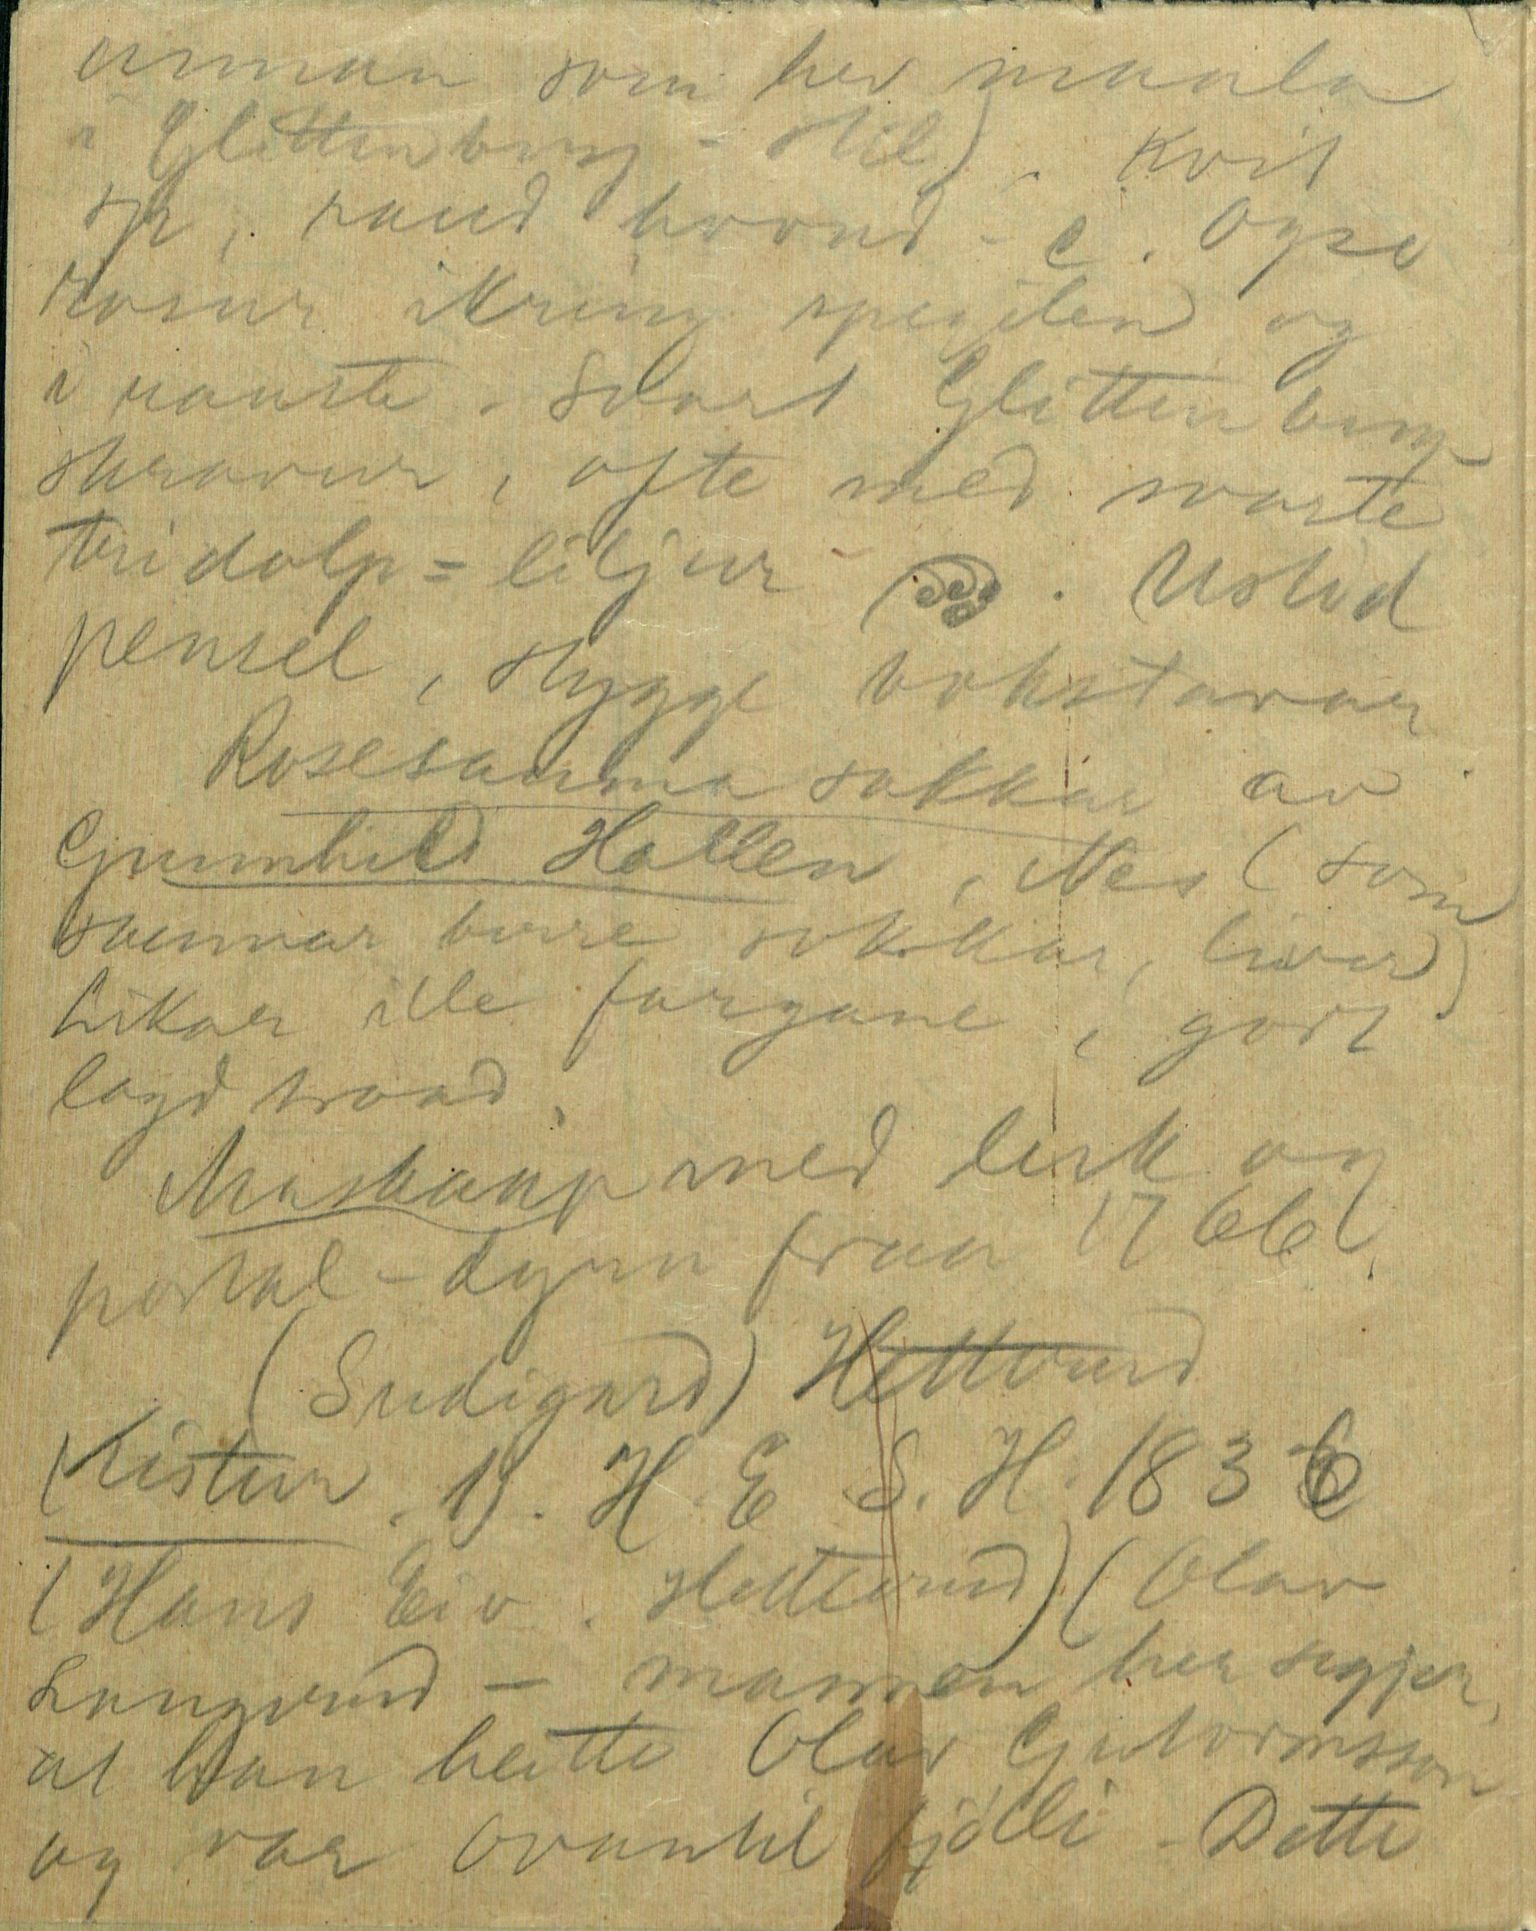 annan som hev maala
i Glittenberg-stil). Kvit
sp, raud brand - c. Ogso
rosur ikring spegelen og
i rauste. Svart Glittenberg
skravur, ofte med svarte
tridolp=liljur. Ustød
pensel, stygge bokstavar
Rosesauma sokkar av
Gunnhild Hallen, Nes (som
saumar berre sokkar, livar)
Likar ille fargane, godt
lagd traad.
Matskaap med lesk og
portal-dyrn fraa 1766.
(Sudigard) Hettverud
Kistur. 1). H. E. S. H. 1836
(Hans Eiv. Hettverud) (Olav
Langerud - mannen her segjer,
at han heitte Olav Gutormsson
og var ovantil fjølli. Dette